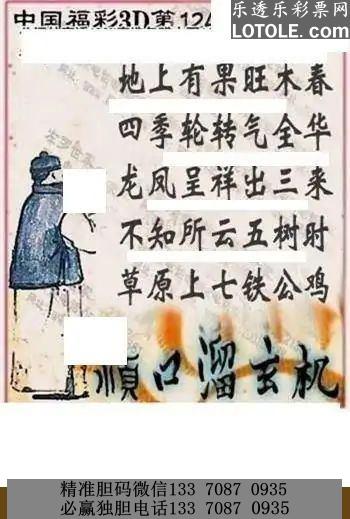 中国福彩3D第124
乐透乐彩票网
LOTOLE.com
地上有果旺木春
四季轮转气全华
龙凤呈祥出三来
不知所云五树时
草原上七铁公鸡
顺口溜玄机
精准胆码微信133 7087 0935
必赢独胆电话133 7087 0935